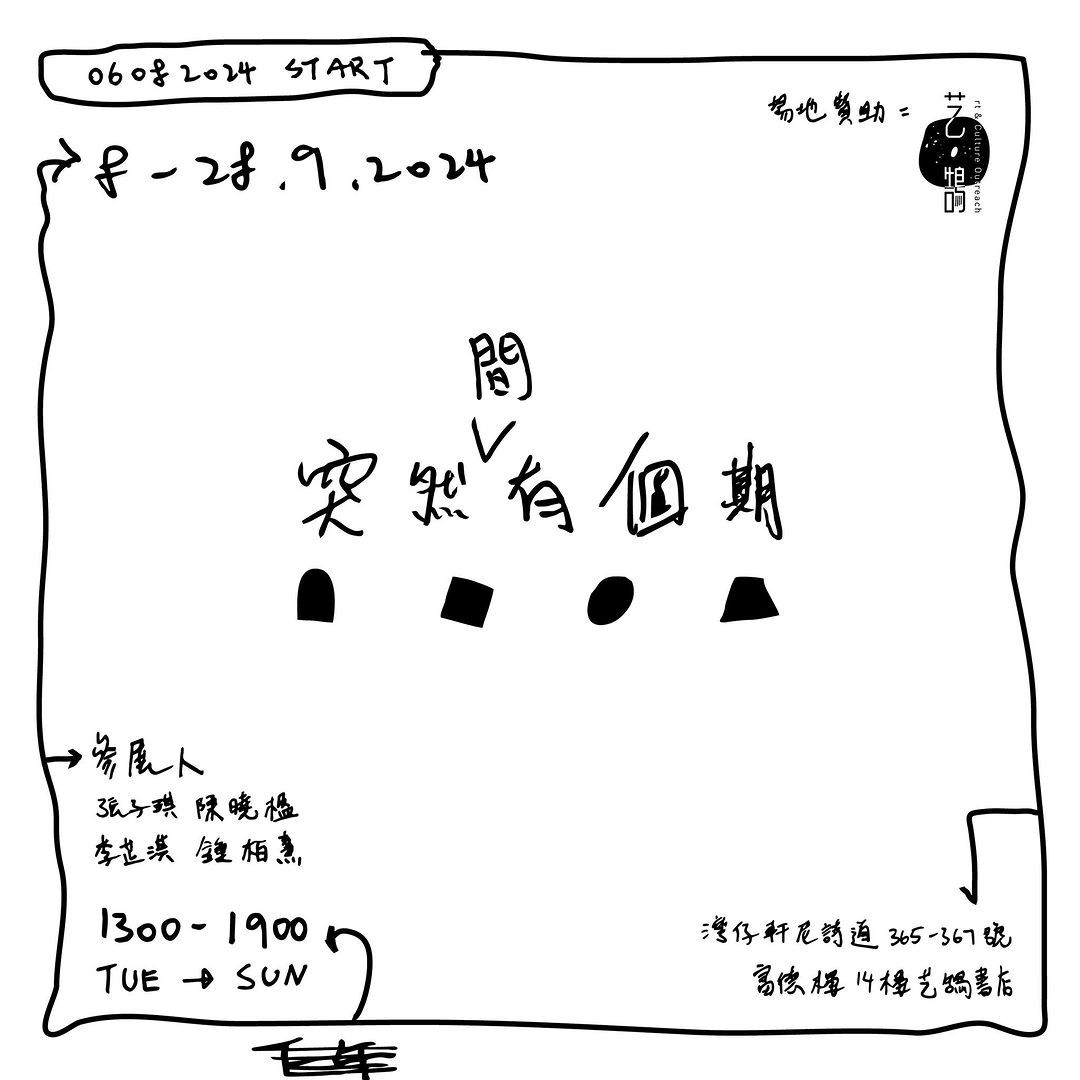 06082024 START
8-28.9.2024
場地贊助=
艺•鵠
rt & Culture Outreach
間
突然有個期
參展人
張子琪 陳曉楹
李芷淇 鍾柏熹
1300-1900
TUE → SUN
灣仔軒尼詩道 365-367號
富德樓 14樓艺鵠書店